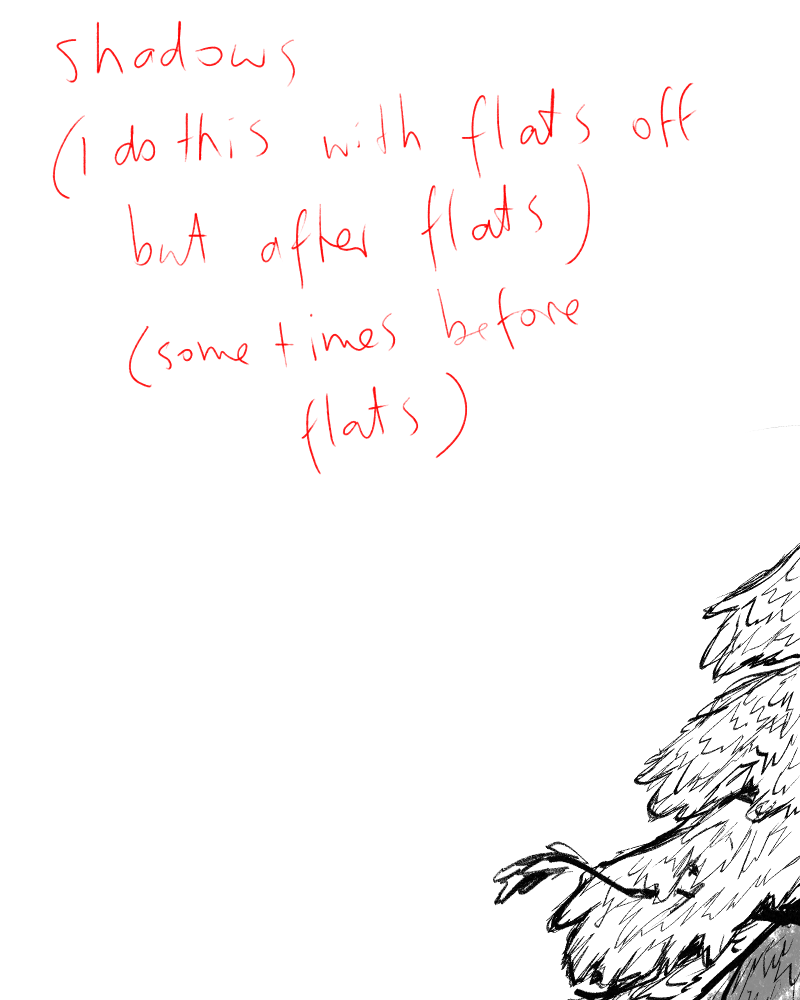 shadows
(I do this with flats off
but after flats)
(sometimes before
flats)